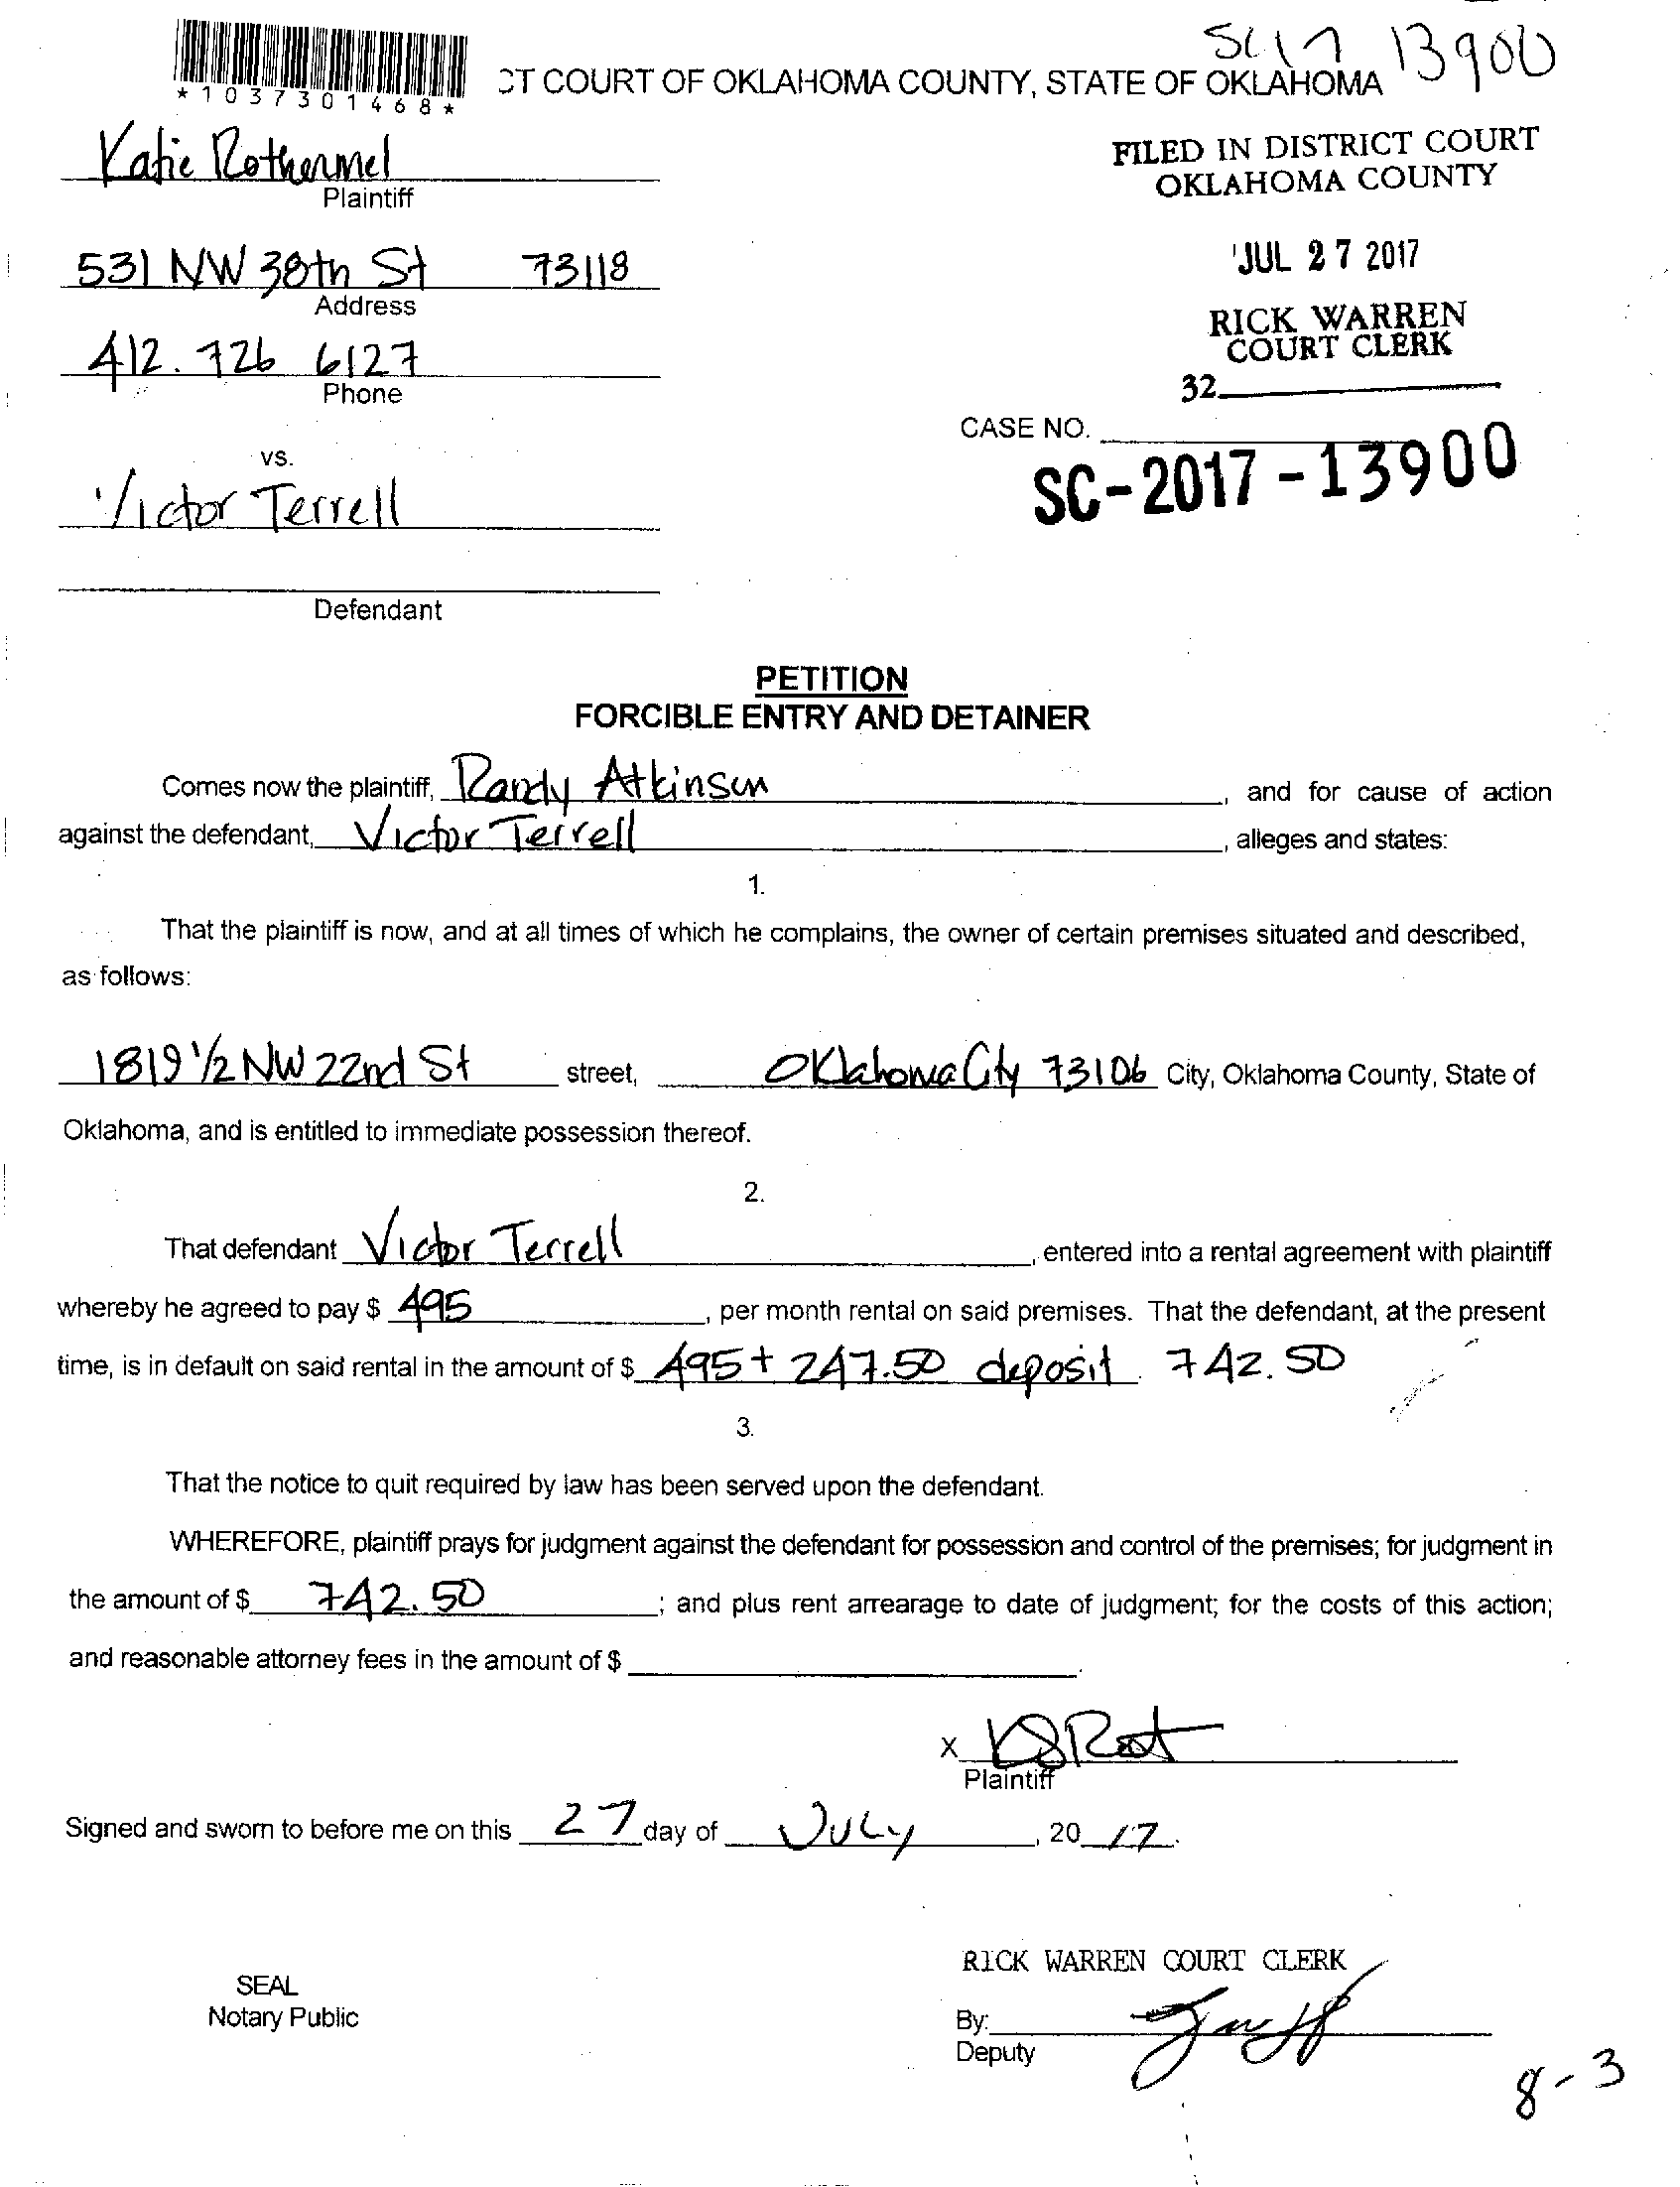 SC17 13900
*1037301468*
CT COURT OF OKLAHOMA COUNTY, STATE OF OKLAHOMA
Katie Rothermel
Plaintiff
FILED IN DISTRICT COURT
OKLAHOMA COUNTY
531 NW 38th St 73118
Address
JUL 27 2017
RICK WARREN
COURT CLERK
412. 726 6127
Phone
32
CASE NO.
SC-2017-13900
vs.
Victor Terrell
Defendant
PETITION
FORCIBLE ENTRY AND DETAINER
Comes now the plaintiff, Randy Atkinson, and for cause of action
against the defendant, Victor Terrell, alleges and states:
1.
That the plaintiff is now, and at all times of which he complains, the owner of certain premises situated and described,
as follows:
1819 1/2 NW 22nd St street, Oklahoma City 73106 City, Oklahoma County, State of
Oklahoma, and is entitled to immediate possession thereof.
2.
That defendant Victor Terrell, entered into a rental agreement with plaintiff
whereby he agreed to pay $ 495, per month rental on said premises. That the defendant, at the present
time, is in default on said rental in the amount of $ 495 + 247.50 deposit 742.50
3.
That the notice to quit required by law has been served upon the defendant.
WHEREFORE, plaintiff prays for judgment against the defendant for possession and control of the premises; for judgment in
the amount of $ 742.50; and plus rent arrearage to date of judgment; for the costs of this action;
and reasonable attorney fees in the amount of $
X
Plaintiff
Signed and sworn to before me on this 27 day of July, 20 17.
RICK WARREN COURT CLERK
SEAL
Notary Public
By:
Deputy
8-3